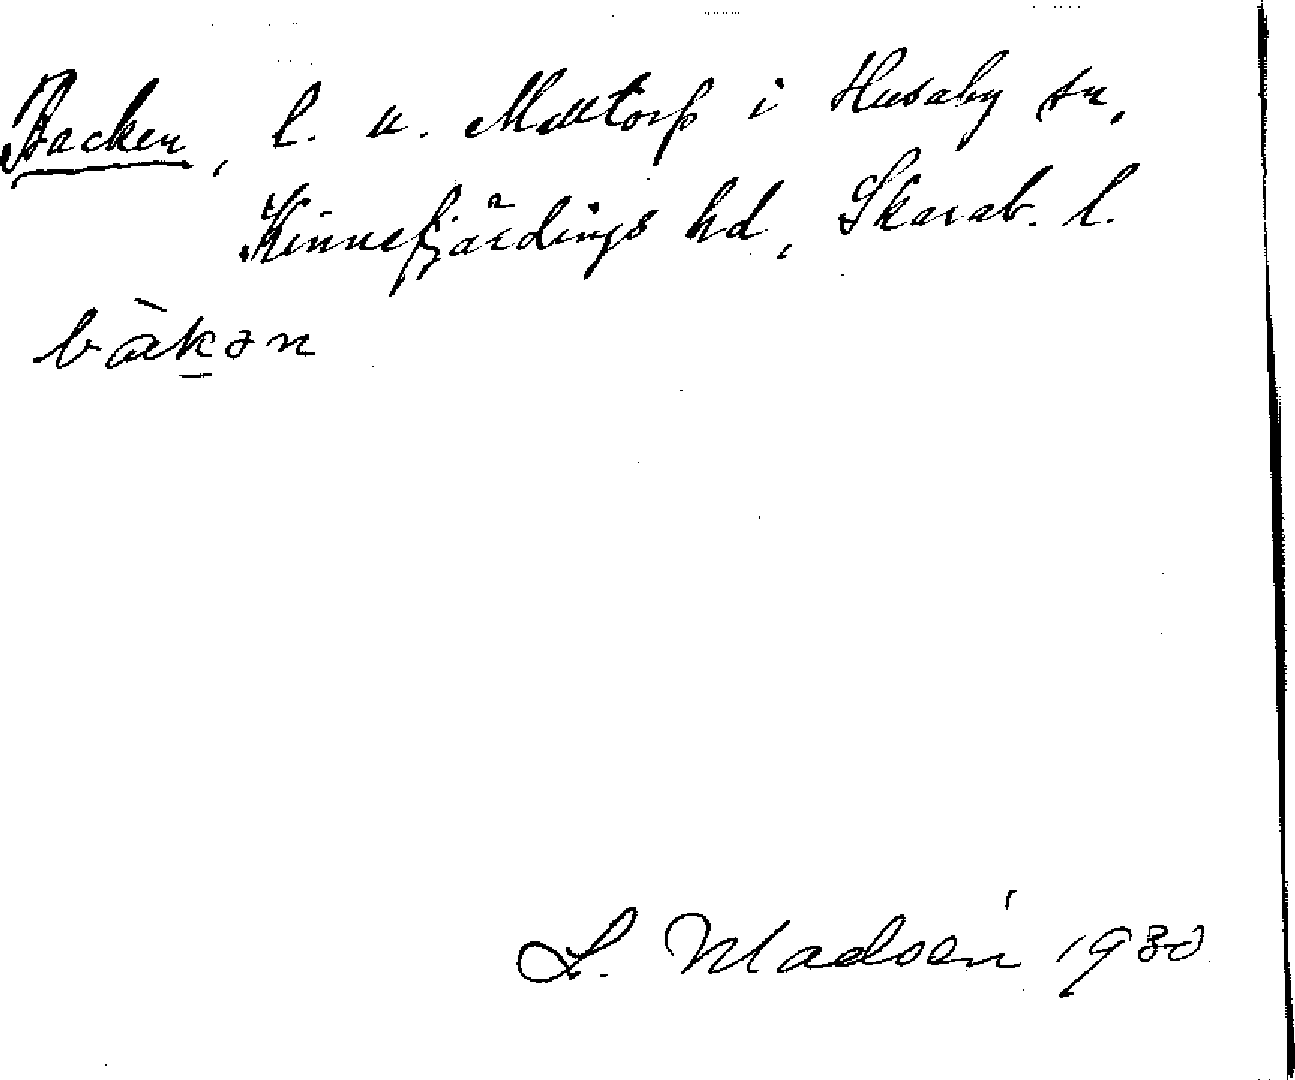 Backen, l. u. Mattorp i Husaby sn,
Kinnefjärdings hd, Skarab. l.
bàk̲ən
L. Madsén 1930